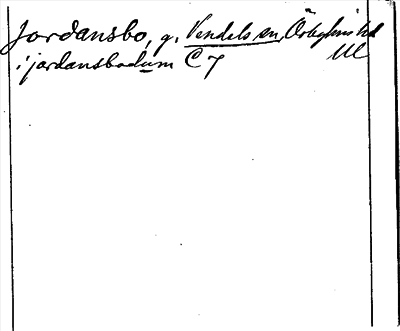 Jordansbo, g. Vendels sn, Örbyhus hd
Ul
i jordansbodum C 7